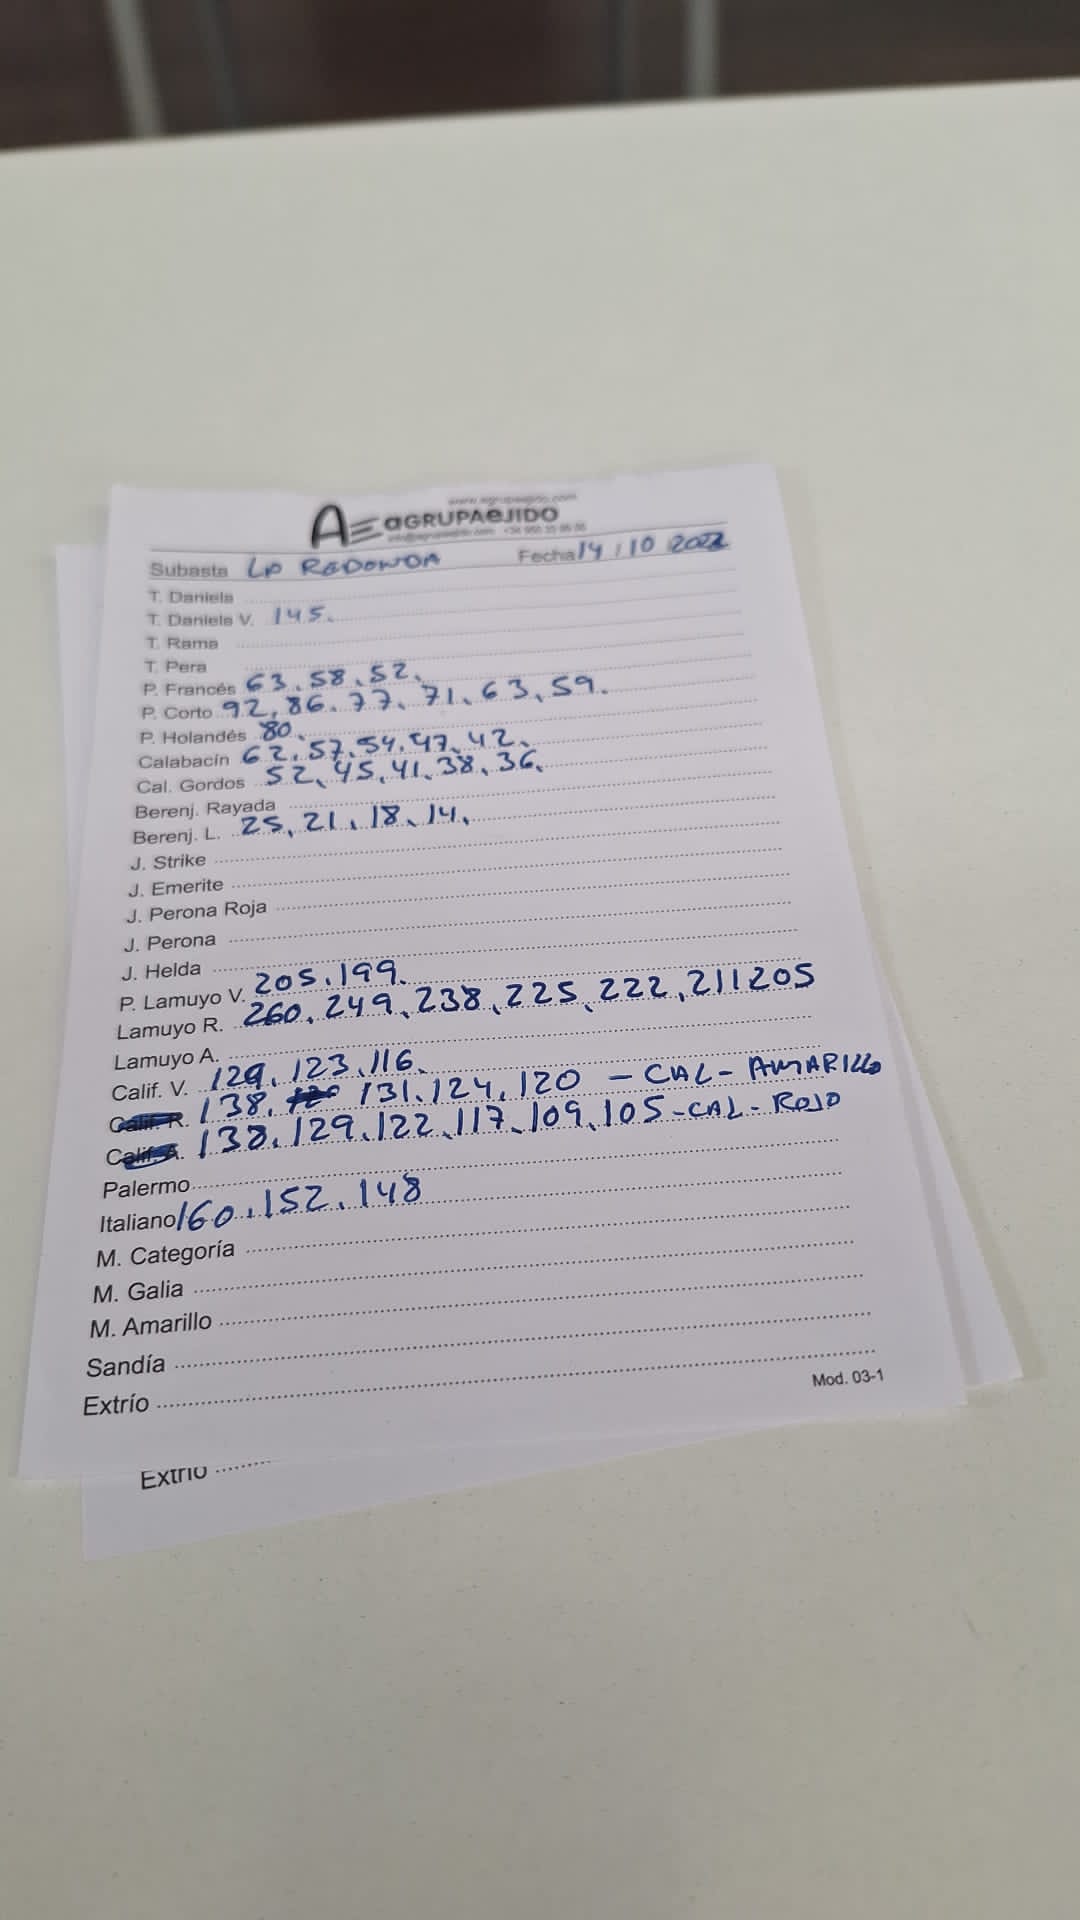 www.agrupaejido.com
AE aGRUPAeJIDO
Subasta LA REDONDA Fecha 14/10 2022
T. Daniela
T. Daniela V. 145.
T. Rama
T. Pera
P. Francés 63, 58, 52,
P. Corto 92, 86, 77, 71, 63, 59.
P. Holandés 80.
Calabacín 62, 57, 54, 47, 42.
Cal. Gordos 52, 45, 41, 38, 36.
Berenj. Rayada
Berenj. L. 25, 21, 18, 14,
J. Strike
J. Emerite
J. Perona Roja
J. Perona
J. Helda
P. Lamuyo V. 205, 199.
Lamuyo R. 260, 249, 238, 225, 222, 211 205
Lamuyo A.
Calif. V. 129, 123, 116.
Calif. R. 138, 131, 124, 120 - CAL - AMARILLO
Calif. A. 138, 129, 122, 117, 109, 105 - CAL - ROJO
Palermo
Italiano 160, 152, 148
M. Categoría
M. Galia
M. Amarillo
Sandía
Extrío
Mod. 03-1
Extrío